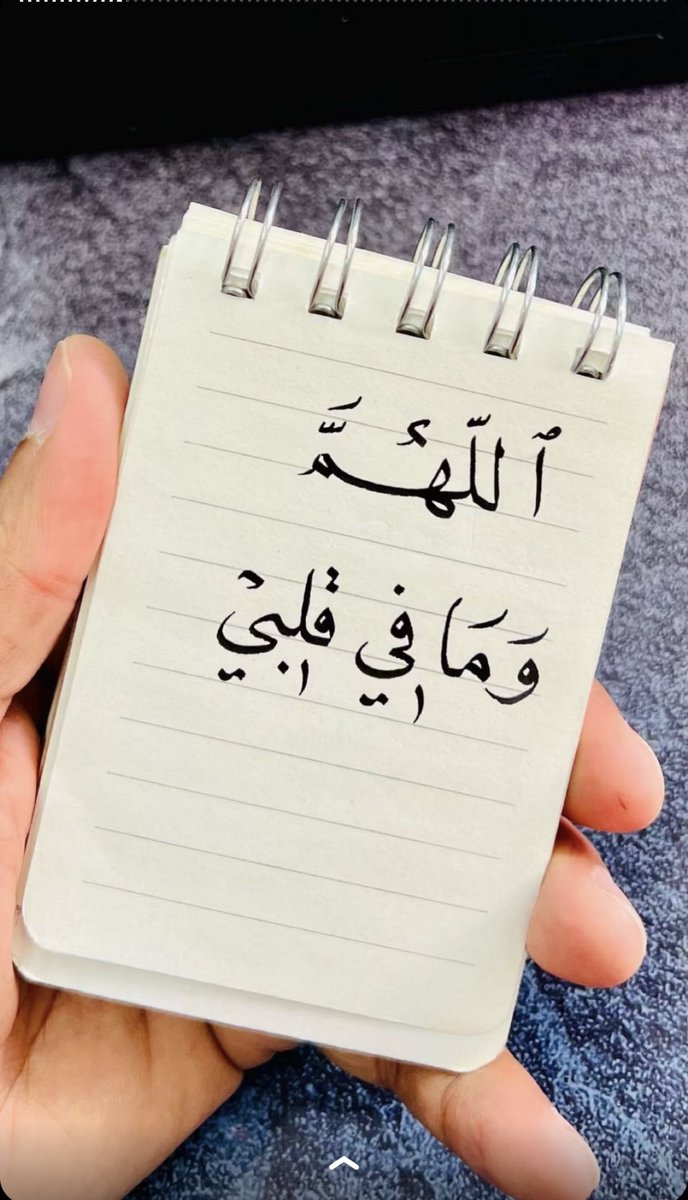 ٱللّهُمَّ
وَمَا فِي قلبِيْ